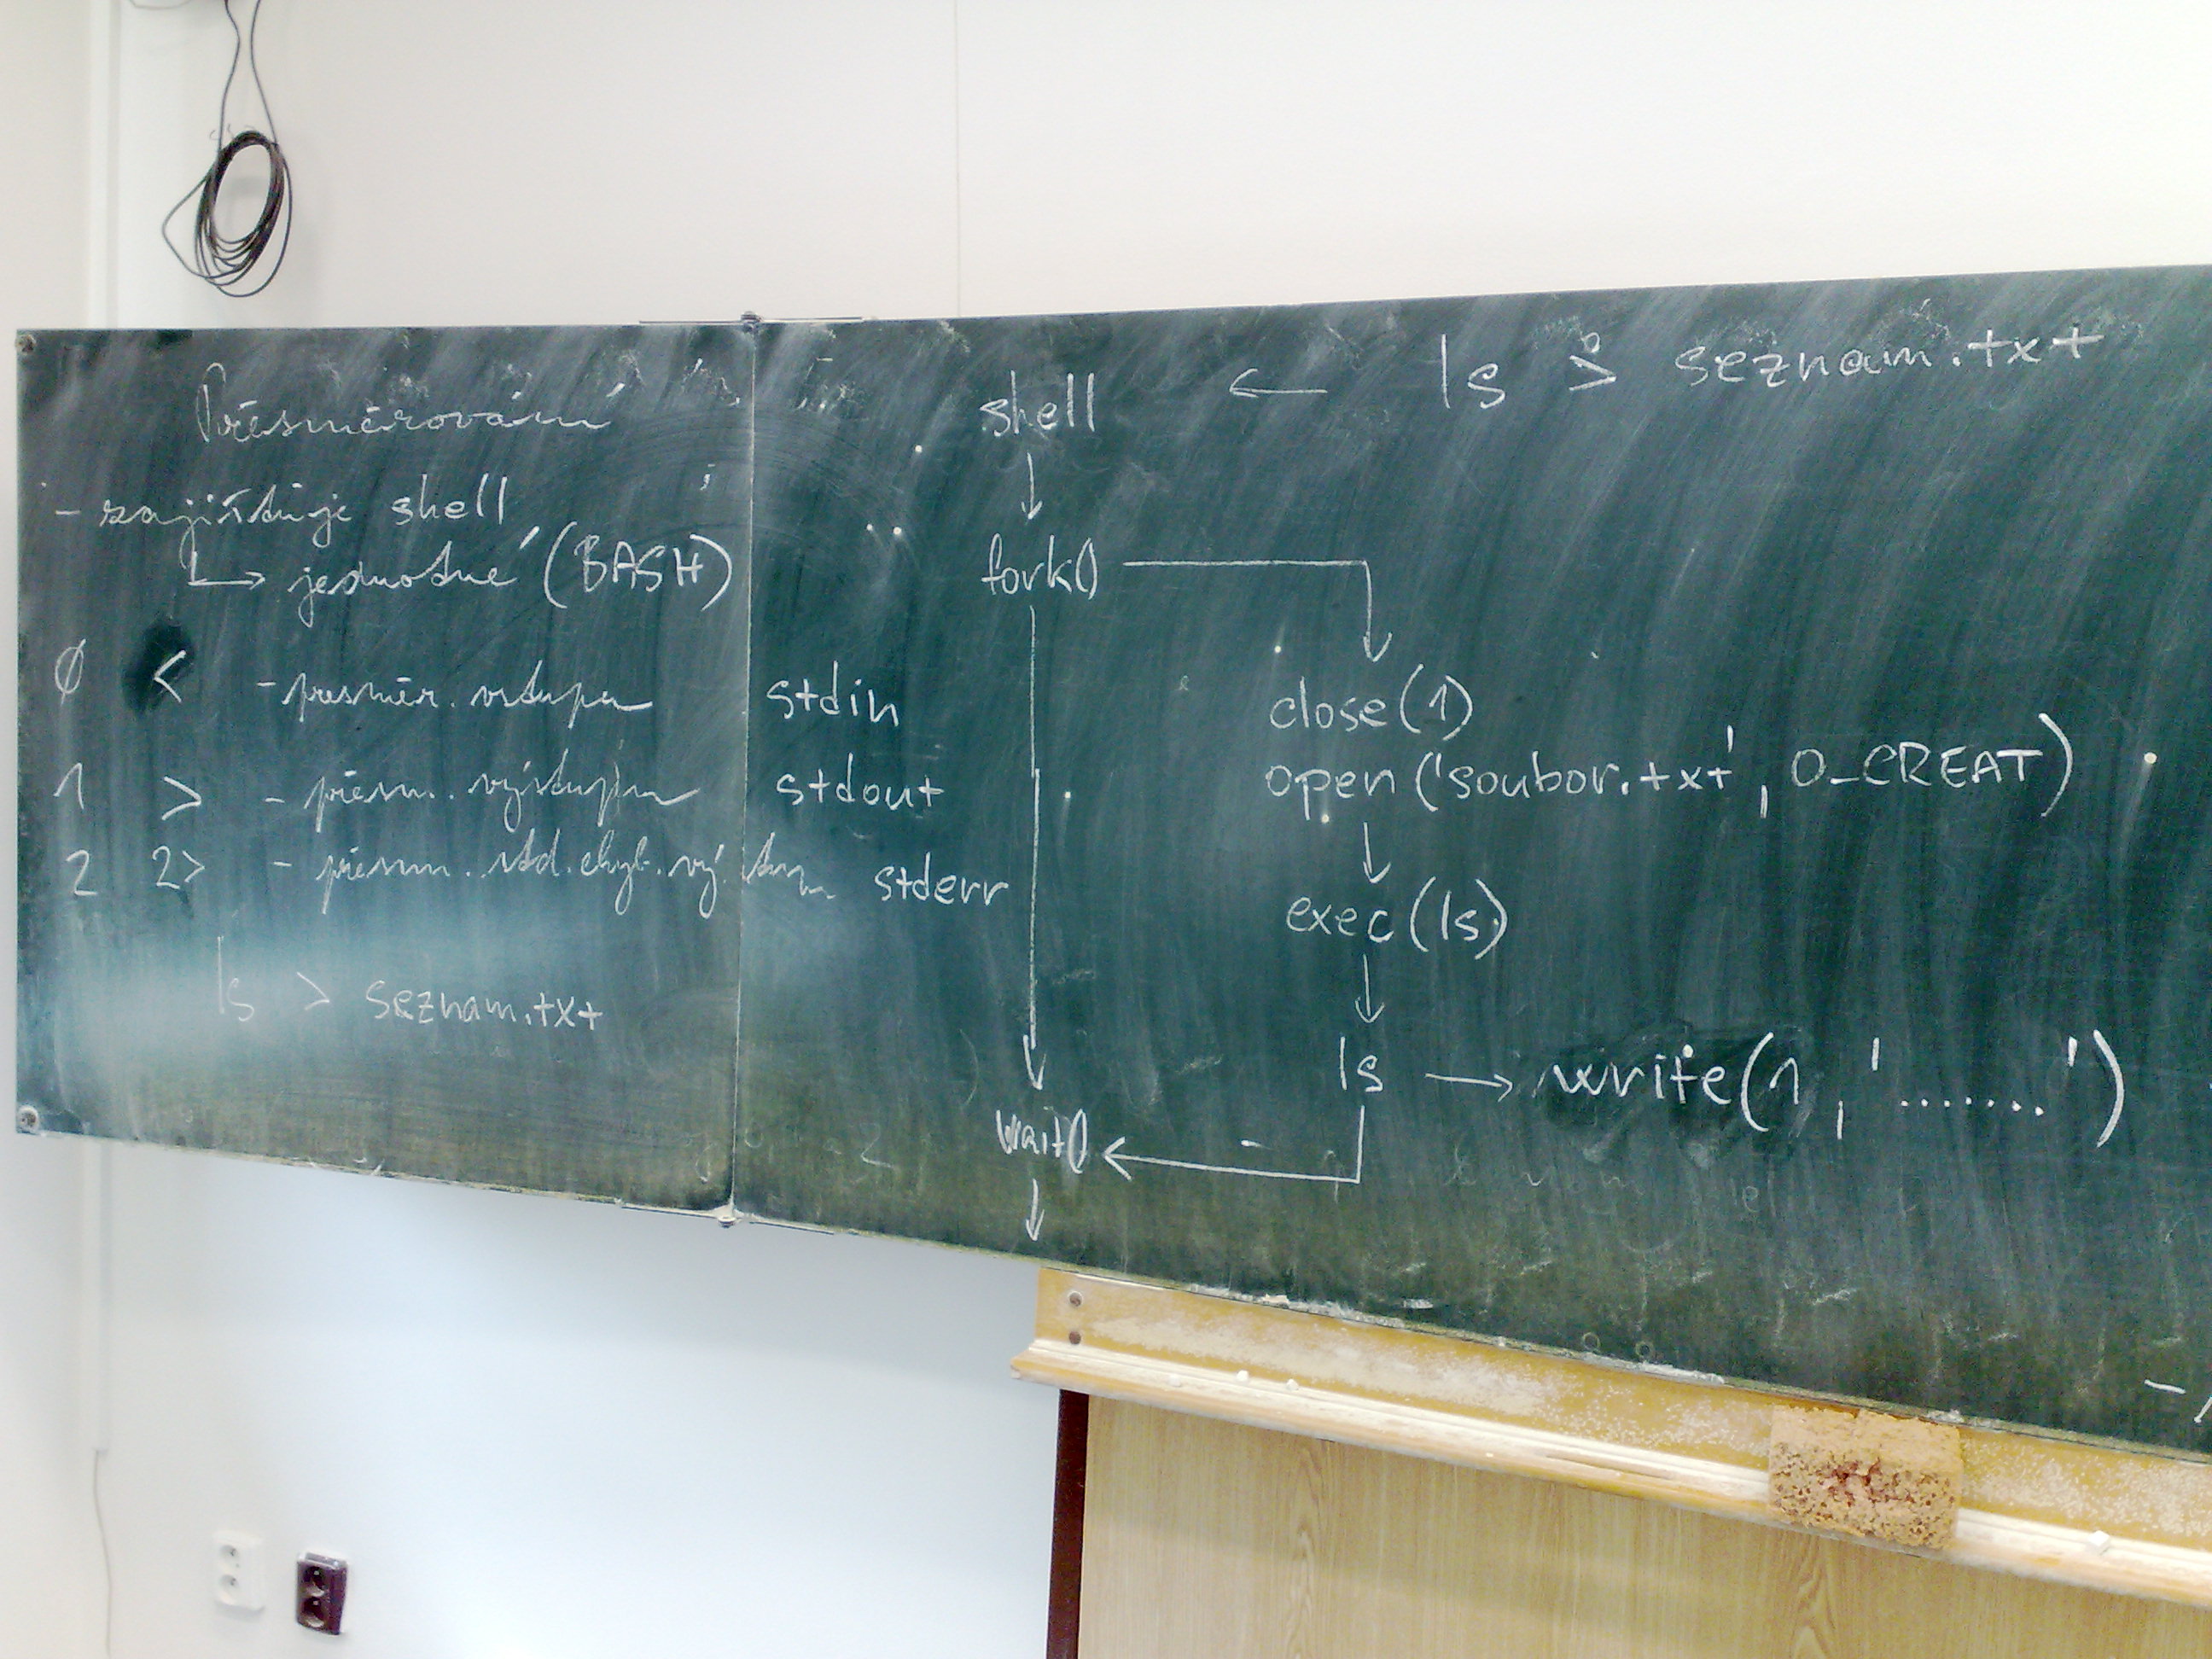 Přesměrování
- zajišťuje shell
jednotné (BASH)
0 < - přesměr. vstupu stdin
1 > - přesm. výstupu stdout
2 2> - přesm. std. chyb. výstu stderr
ls > seznam.txt
shell ← ls > seznam.txt
fork()
close(1)
open('soubor.txt', O_CREAT)
exec(ls)
ls → write(1, '.......')
wait()